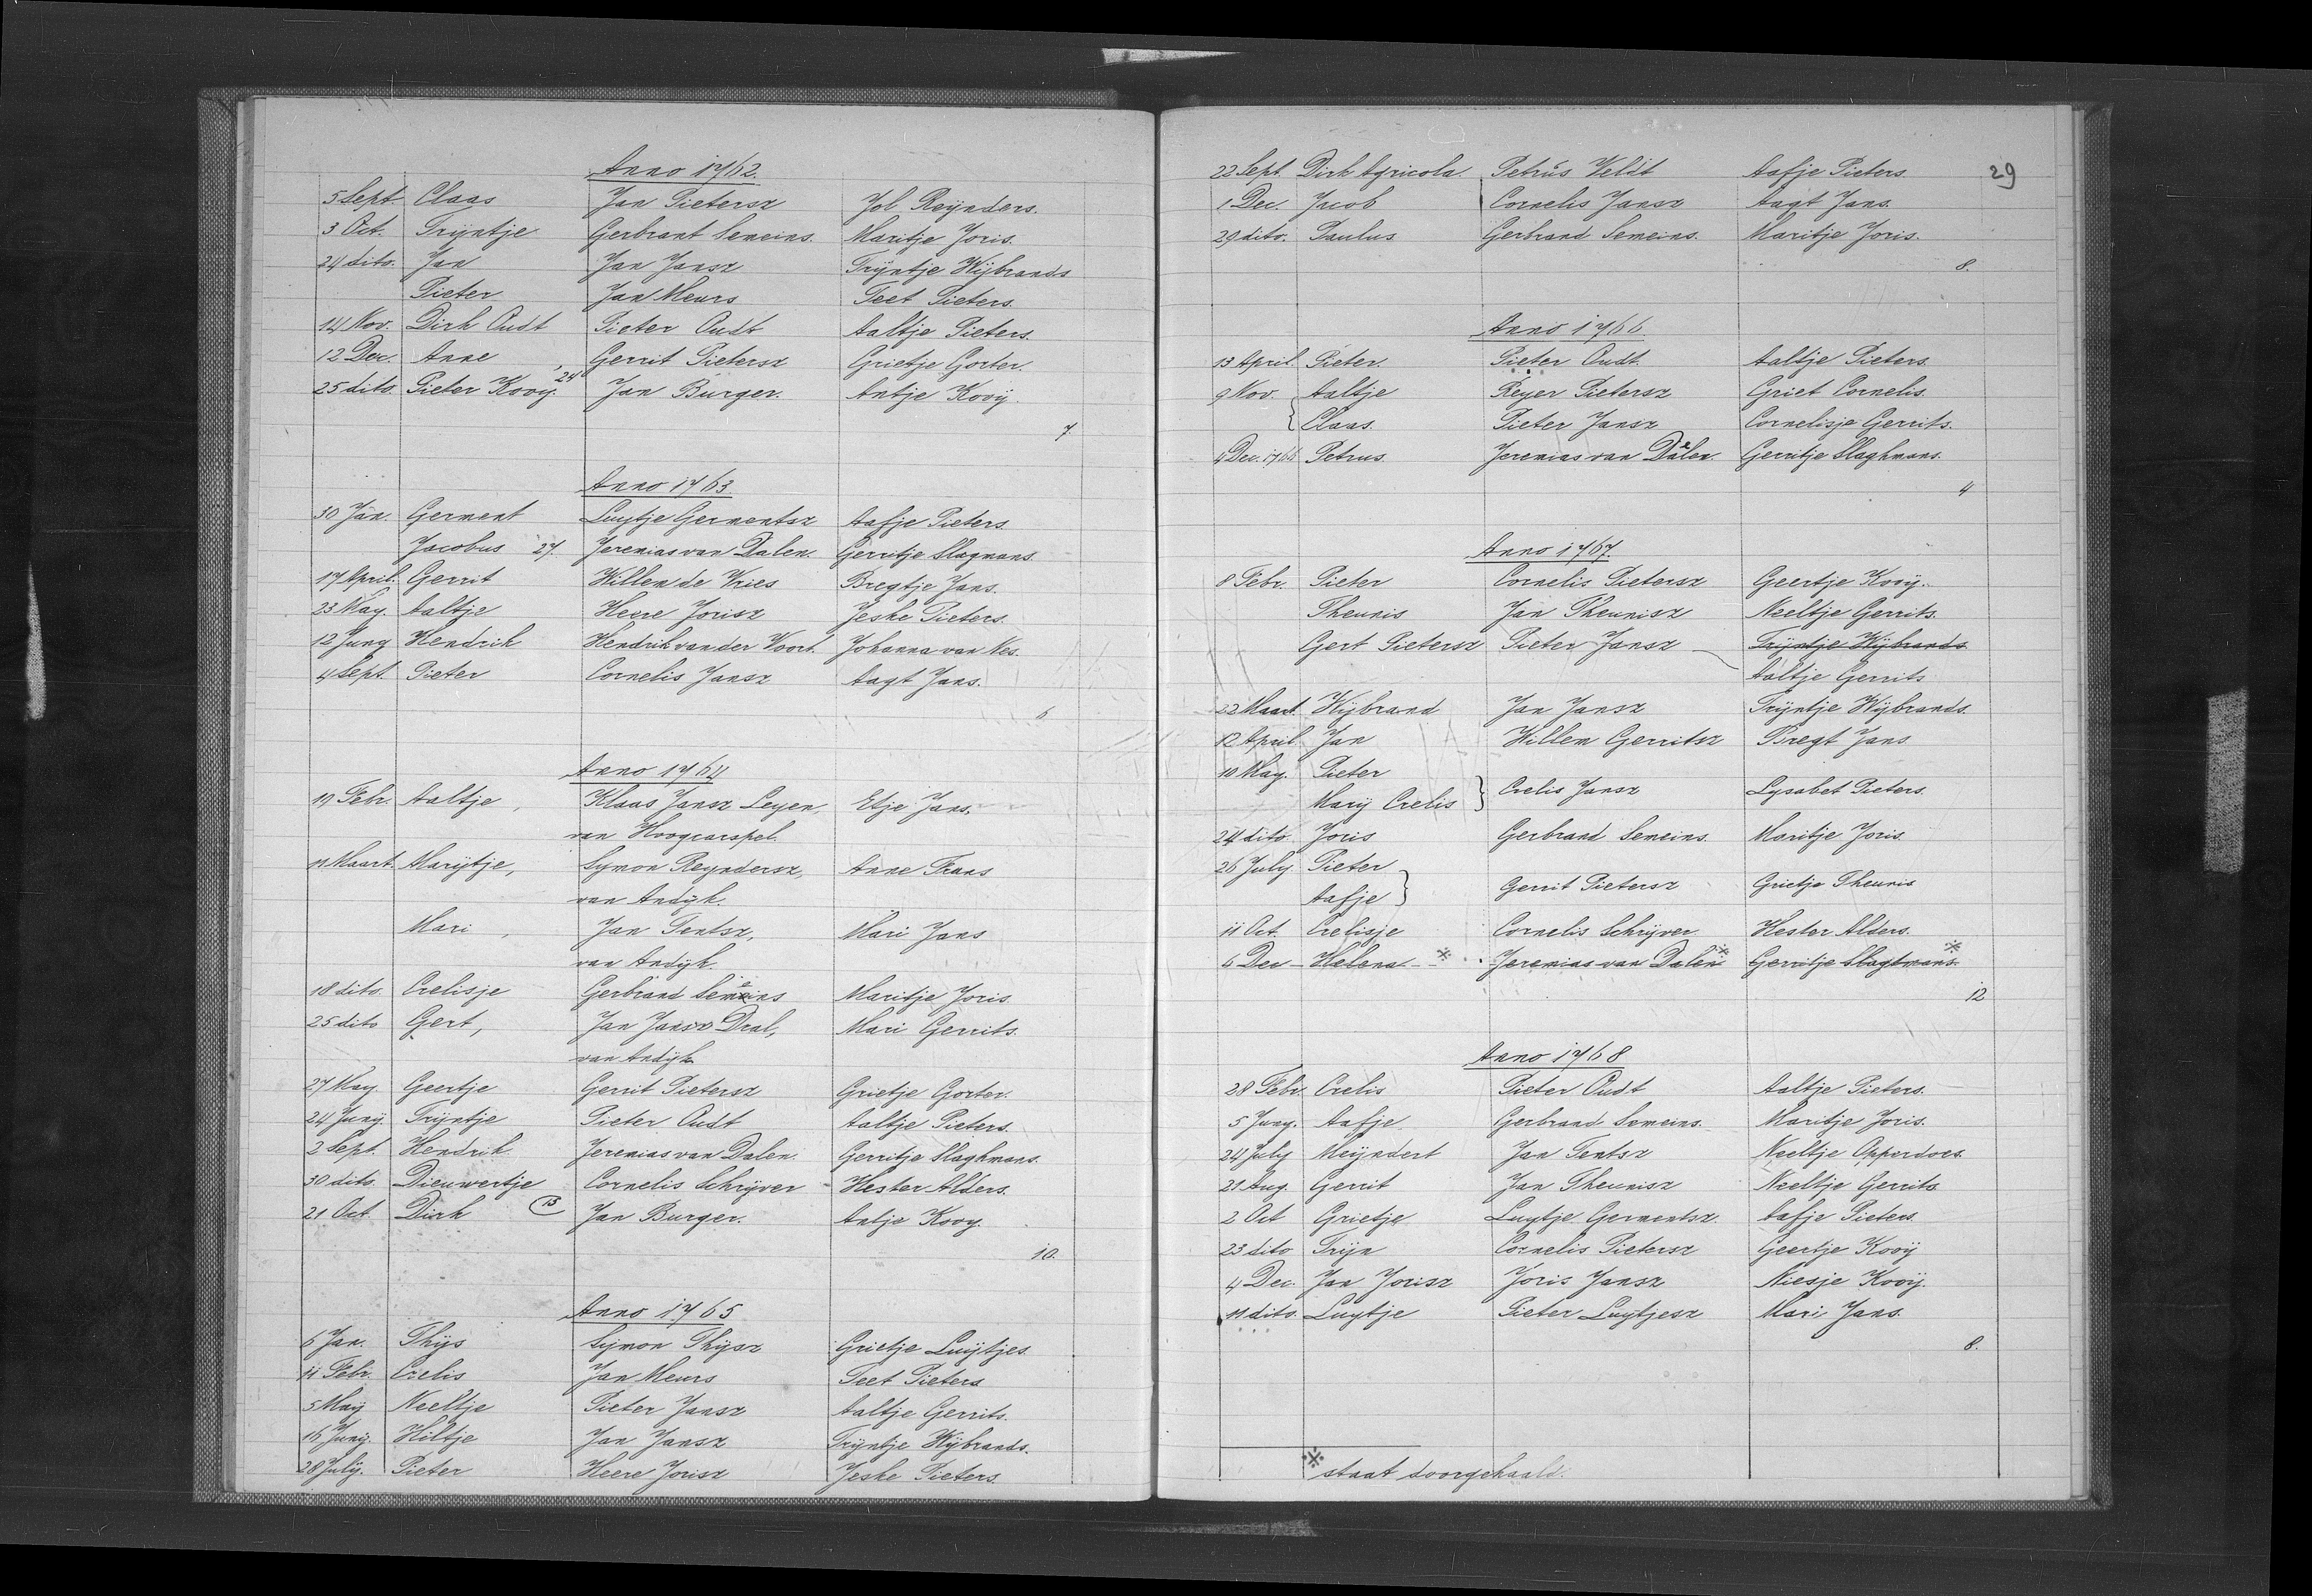 Anno 1762.
5 Sept. Claas Jan Pietersz Jol Reÿnders.
3 Oct. Trÿntje Gerbrant Semeins. Maritje Joris.
24 dito. Jan Jan Jansz Trÿntje Wÿbrands
Pieter Jan Meurs Teet Pieters.
14 Nov. Dirk Oudt Pieter Oudt Aaltje Pieters.
12 Dec. Anne Gerrit Pietersz Grietje Gorter.
25 dito. Pieter Kooÿ. 24 Jan Burger. Antje Kooÿ.
7.
Anno 1763.
30 Jan. Germent Luytje Germentsz Aafje Pieters.
Jacobus 27. Jeremias van Dalen. Gerritje Slagmans.
17 April. Gerrit Willem de Vries Bregtje Jans.
23 May. Aaltje Heere Jorisz Jeske Pieters.
12 Juny Hendrik Hendrik van der Voort. Johanna van Nes.
4 Sept. Pieter Cornelis Jansz Aagt Jans.
6
Anno 1764
19 Febr. Aaltje, Klaas Jansz Leyen, Etje Jans,
van Hoogcarspel.
11 Maart. Marijtje, Symon Reyndersz, Anne Frans
van Andÿk.
Mari, Jan Tentsz, Mari Jans
van Andÿk.
18 dito. Crelisje Gerbrand Semeins Maritje Joris.
25 dito Gert, Jan Jansz Dral, Mari Gerrits.
van Andÿk
27 May. Geertje Gerrit Pietersz Grietje Gorter.
24 Junÿ. Trÿntje Pieter Oudt Aaltje Pieters.
2 Sept. Hendrik Jeremias van Dalen. Gerritje Slaghmans.
30 dito. Dieuwertje Cornelis Schrÿver Hester Alders.
21 Oct. Dirk 13 Jan Burger. Antje Kooy.
10.
Anno 1765
6 Jan. Thÿs Sÿmon Thÿsz Grietje Luÿtjes.
11 Febr. Crelis Jan Meurs Teet Pieters
5 Maÿ Neeltje Pieter Jansz Aaltje Gerrits.
16 Junÿ. Hiltje Jan Jansz Trÿntje Wÿbrands.
28 Julÿ. Pieter Heere Jorisz Jeske Pieters.
29
22 Sept. Dirk Agricola. Petrus Veldt Aafje Pieters.
1 Dec. Jacob Cornelis Jansz Aagt Jans.
29 dito. Paulus Gerbrand Semeins. Maritje Joris.
8.
Anno 1766.
13 April. Pieter. Pieter Oudt. Aaltje Pieters.
9 Nov. Aaltje Reyer Pietersz Griet Cornelis.
Claas. Pieter Jansz Cornelisje Gerrits.
4 Dec. 1766 Petrus. Jeremias van Dalen. Gerritje Slaghmans.
4
Anno 1767.
8 Febr. Pieter Cornelis Pietersz Geertje Kooy.
Theunis Jan Theunisz Neeltje Gerrits.
Gert Pietersz Pieter Jansz Trÿntje Wÿbrands
Aaltje Gerrits
22 Maart. Wÿbrand Jan Jansz Trÿntje Wÿbrands.
12 April. Jan Willem Gerritsz Bregt Jans
10 May. Pieter
Marÿ Crelis } Crelis Jansz Lysabet Pieters.
24 dito Joris Gerbrand Semeins. Maritje Joris.
26 July Pieter
Aafje } Gerrit Pietersz Grietje Theunis
11 Oct. Crelisje Cornelis Schrÿver Hester Alders.
6 Dec Helena ※ Jeremias van Dalen ※ Gerritje Slagtmans ※
12
Anno 1768
28 Febr. Crelis Pieter Oudt Aaltje Pieters.
5 Juny. Aafje Gerbrand Semeins. Maritje Joris.
24 July Meÿndert Jan Tentsz Neeltje Opperdoes.
21 Aug. Gerrit Jan Theunisz Neeltje Gerrits
2 Oct Grietje Luytje Germentsz. Aafje Pieters.
23 dito Trÿn Cornelis Pietersz Geertje Kooÿ
4 Dec. Jan Jorisz Joris Jansz Niesje Kooÿ.
11 dito. Luytje Pieter Luÿtjesz Mari Jans.
8.
※ staat doorgehaald.